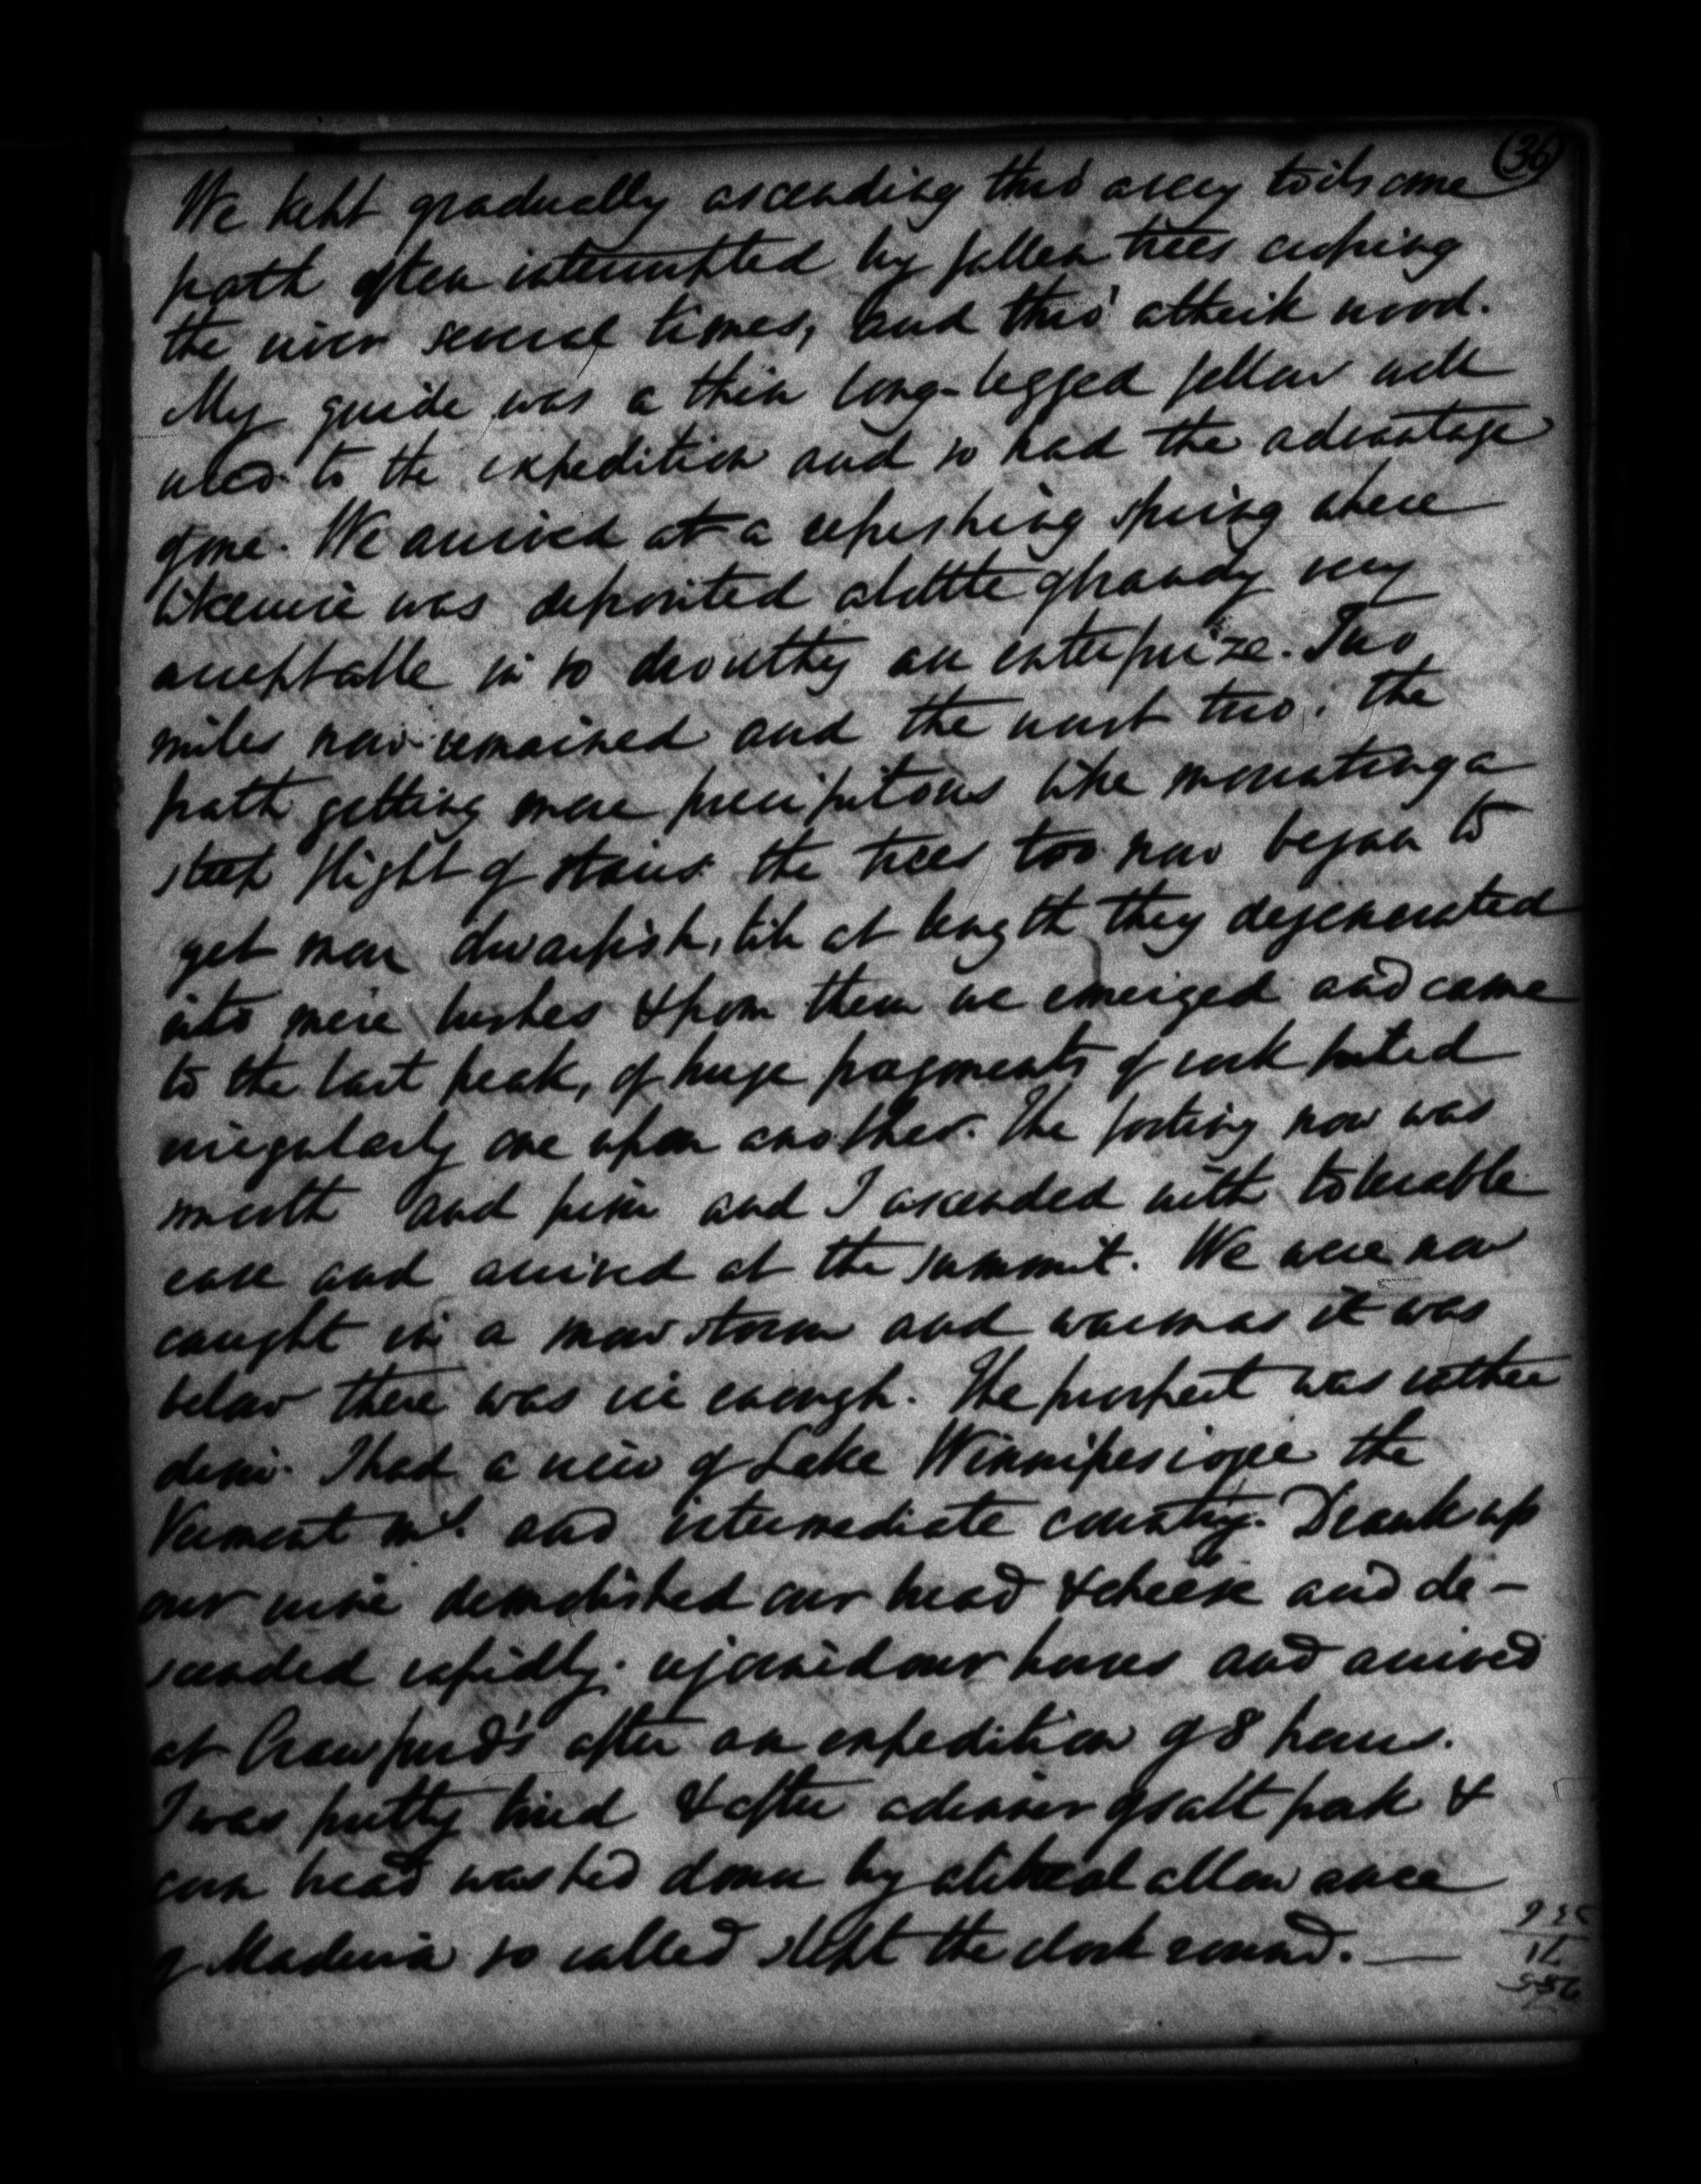 (36)
We kept gradually ascending thro' a very toilsome
path often interrupted by fallen trees crossing
the river several times, and thro' a thick wood.
My guide was a thin long-legged fellow well
used to the expedition and so had the advantage
of me. We arrived at a refreshing spring where
likewise was deposited a bottle of brandy very
acceptable in so drouthy an enterprize. Two
miles now remained and the worst two, the
path getting more precipitous like mounting a
steep flight of stairs the trees too now began to
get more dwarfish, till at length they degenerated
into mere bushes & from them we emerged and came
to the last peak, of huge fragments of rock
irregularly one upon another. The footing now was
smooth and firm and I ascended with tolerable
ease and arrived at the summit. We were now
caught in a snow storm and warm as it was
below there was ice enough. The prospect was rather
dim. I had a view of Lake Winnipesiogee the
Vermont mts. and intermediate country. Drank up
our wine demolished our bread & cheese and de-
scended rapidly. rejoined our horses and arrived
at Crawfurd's after an expedition of 8 hours.
I was pretty tired & after a dinner of salt pork &
corn bread washed down by a liberal allowance
of Madeira so called slept the clock round. —